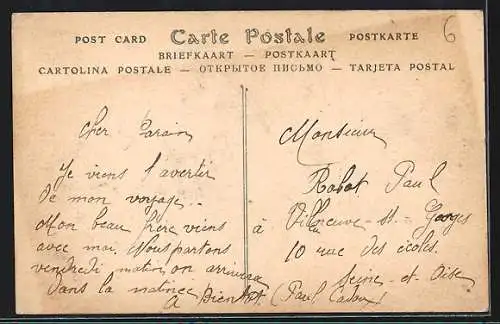 POST CARD Carte Postale POSTKARTE
BRIEFKAART — POSTKAART
CARTOLINA POSTALE — ОТКРЫТОЕ ПИСЬМО — TARJETA POSTAL
6
Cher Parain
Je viens t'avertir
de mon voyage.
Mon beau frere viens
avec moi. Nous partons
vendredi matin, on arrivera
dans la matinee
A Bientot. (Paul Cadoux)
Monsieur
Robot Paul
à Villeneuve-St-Georges
10 rue des écoles.
Seine-et-Oise